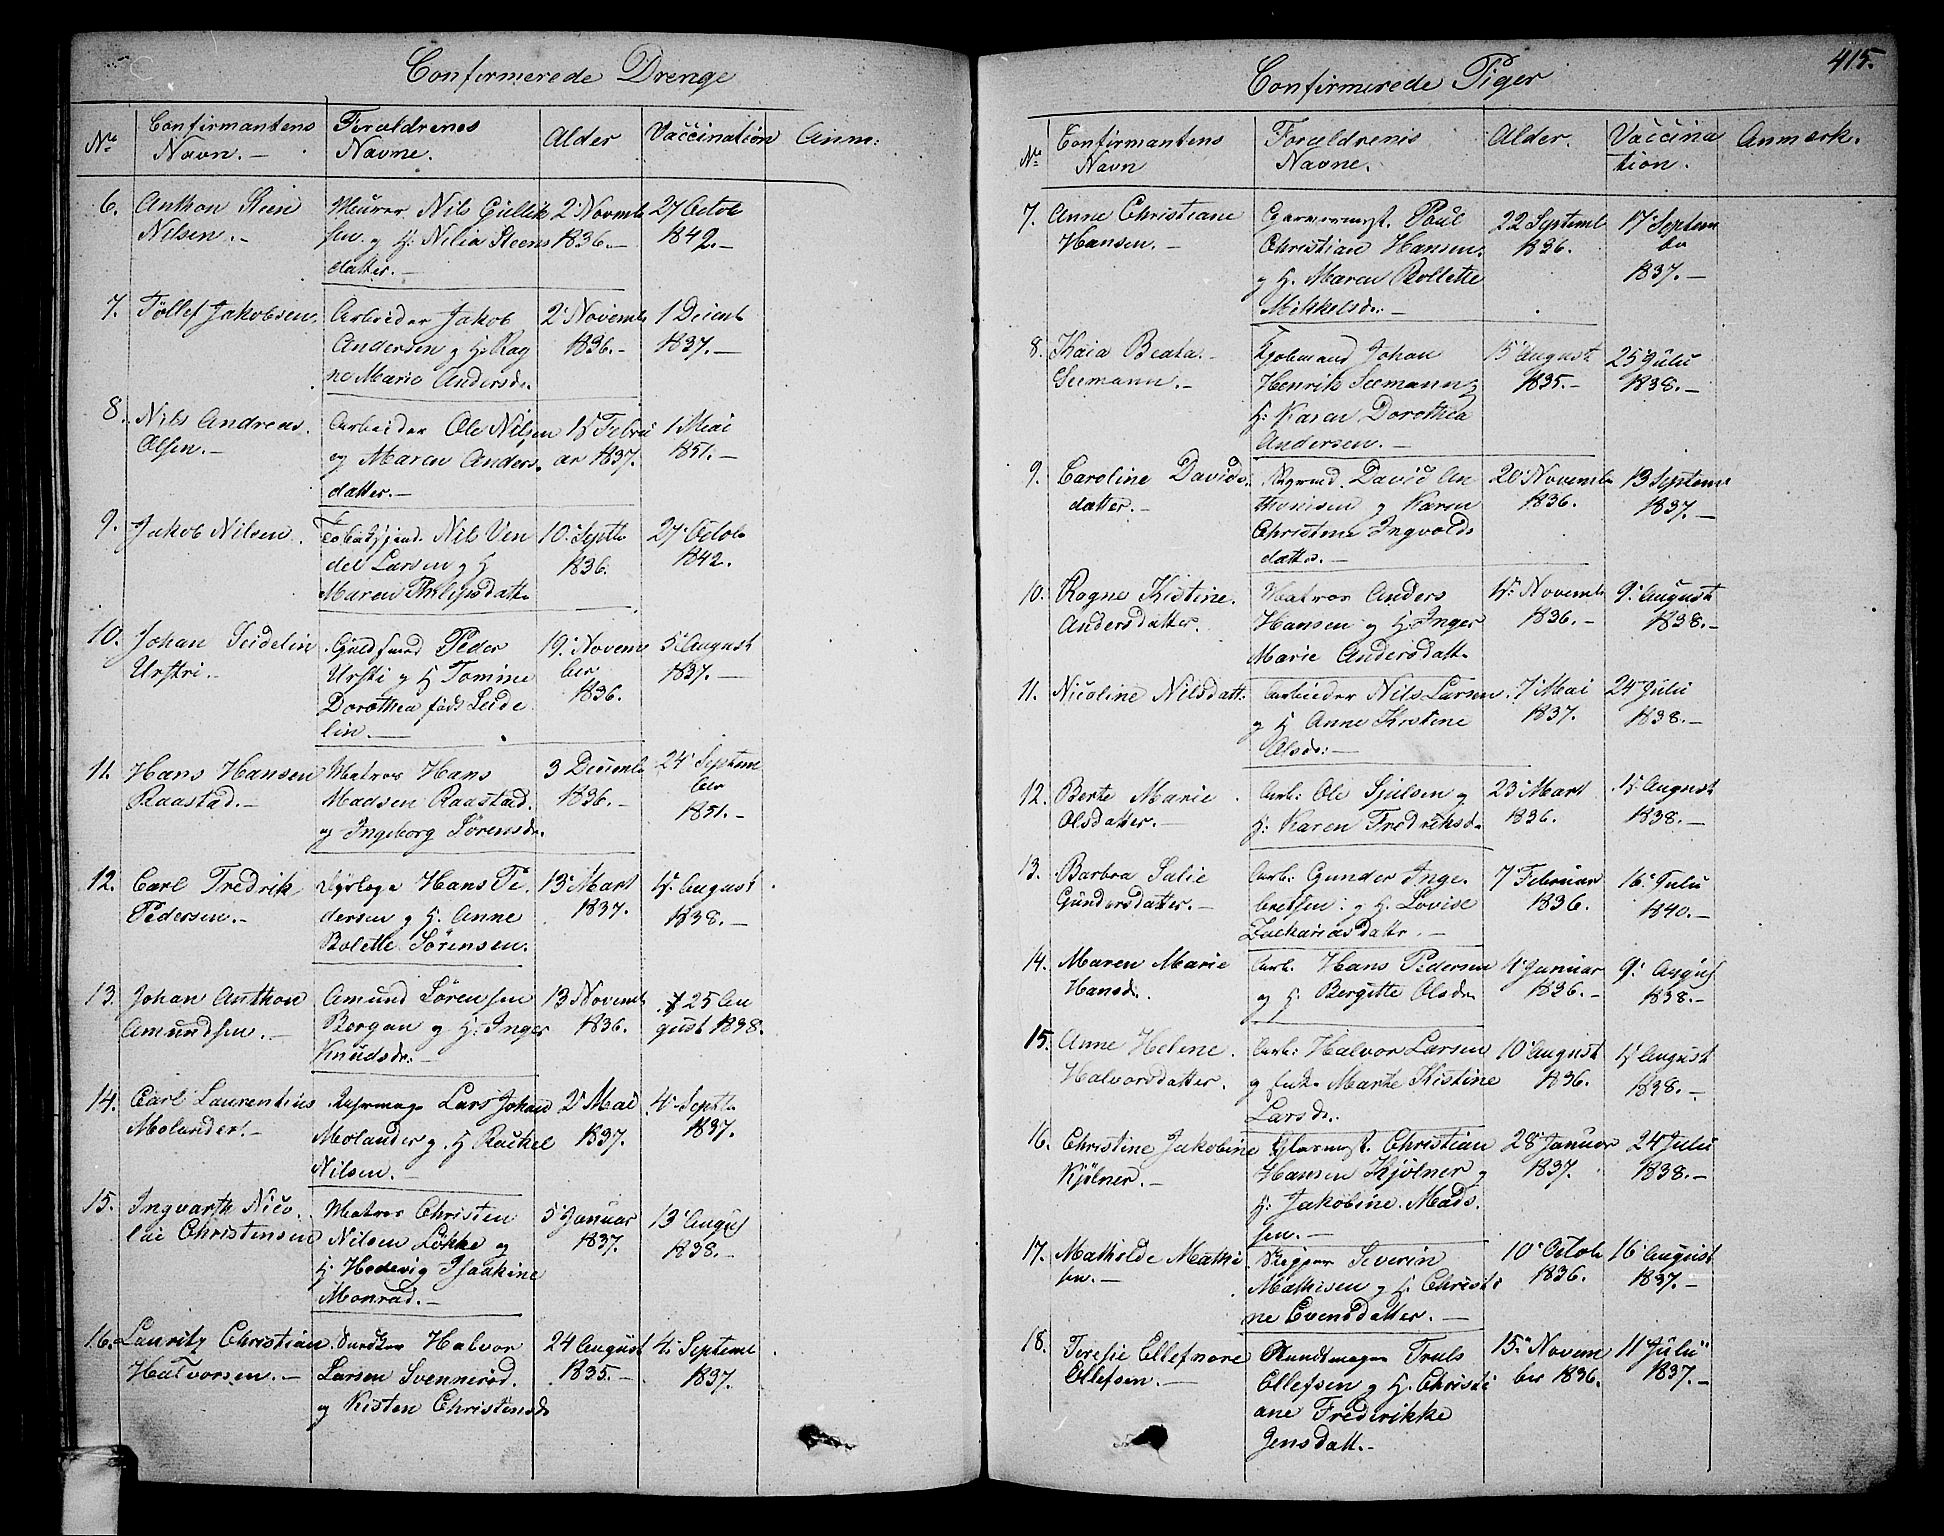 Confirmerede Drenge
No Confirmantens Navn.- Forældrenes Navne. Alder Vaccination Anm:
6. Anthon Steen Muurer Nils Gullik 2' Novemb 27 Octob
Nilsen.- sen. og H: Nilia Steens 1836.- 1842.-
datter.-
7. Tøllef Jakobsen. Arbeider Jakob 2' Novemb 1 Decemb
Andersen og H: Rag 1836.- 1837.-
ne Marie Andersd.
8. Nils Andreas Arbeider Ole Nilsen 15 Febru 1 Mai
Olsen.- og Maren Anders. ar 1837. 1851.-
datter.-
9. Jakob Nilsen. Nils Ven 10' Septb 27 Octob
del Larsen og H 1836. 1842.
Maren Philipsdatt.
10. Johan Seidelin Guldsmed Peder 19' Novem 5' August
Urstri.- Ursti og H Tomine ber 1837.-
Dorothea fød: Seide 1836.
lin.-
11. Hans Hansen Matros Hans 3 Decemb 24' Septem
Raastad.- Madsen Raastad. 1836.- ber
og Ingeborg Sørensd. 1851.-
12. Carl Fredrik Dyrlæge Hans Pe 13' Mart 15' August
Pedersen.- dersen og H. Anne 1837. 1838.-
Bolette Sørensen.
13. Johan Anthon Amund Sørensen 13 Novemb 25 Au
Amundsen.- Bergan og H: Inger 1836. gust 1838.
Knudsd:-
14. Carl Laurentius Lars Johan 2' Mai 4' Septb
Molander.- Molander og H Rachel 1837. 1837.
Nilsen.-
15. Ingvarth Nico Matros Christen 5' Januar 13' August
lai Christensen Nilsen Løkke og 1837. 1838.-
H Hedevig Isaakine
Monrad.-
16. Lauritz Christian Halvor 24 August 4' Septemb
Halvorsen.- Larsen Svennerød. 1835.- 1837.
og Kisten Christensd.
415.
Confirmerede Piger
No Confirmantens Navn Forældrenes Navne. Alder. Vaccina tion. Anmærk.
7. Anne Christiane Garvermst. Poul 22 Septemb 17' Septem
Hansen.- Christian Hansen. 1836. ber
og H. Maren Bollette 1837.-
Mikkelsd.-
8. Kaia Beata Kjøbmand Johan 15' August 25' Juli
Seemann.- Henrik Seemann og 1835.- 1838.-
H: Karen Dorothea
Andersen.-
9. Caroline Davids. David An 20' Novemb 13 Septemb
datter.- thonisen og Karen 1836. 1837.-
Christine Ingvolds
datter.-
10. Ragne Kistine. Matros Anders 15' Novemb 9' August
Andersdatter. Hansen og H: Inger 1836.- 1838.-
Marie Andersdatt.
11. Nicoline Nilsdatt. Arbeider Nils Larsen. 7' Mai 24' Juli
og H Anne Kristine 1837. 1838.-
Olsd:-
12. Berte Marie Arb: Ole Sjulsen og 23' Mart 15' August
Olsdatter.- H: Karen Fredriksd. 1836. 1838.-
13. Barbra Salie Arb: Gunder Inge. 7' Februar 16' Juli
Gundersdatter.- bretsen: og H. Lovise 1836. 1840.-
Zachariasdatter.-
14. Maren Marie Arb. Hans Pedersen 4' Januar 9' August
Hansd. og H: Bergitte Olsd. 1836.- 1838.-
15. Anne Helene Arb: Halvor Larsen 10' August 15' August
Halvorsdatter. og Marte Kistine 1836. 1838.-
Larsd.
16. Christine Jakobine Christian 28' Januar 24' Juli
Kjølner.- Hansen Kjølner og 1837. 1838.-
H: Jakobine Mads.
sen.-
17. Mathilde Mathi Skipper Severin 10' Octob 16' August
sen.- Mathisen og H: Christi 1836. 1837.-
ne Evensdatter.-
18. Teresie Ellefnore Bundtmager Truls 15' Novem 11' Juli
Ellefsen.- Ellefsen og H: Christi ber 1836. 1837.-
ane Frederikke
Jensdatt.-